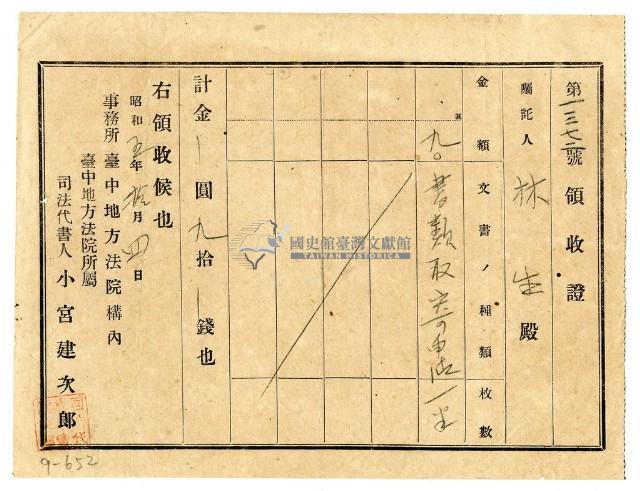 第一三七二號領收證
囑託人 林 生 殿
金額 文書ノ種類 枚數
九〇 書類取寄申請 一半
計金 圓九拾 錢也
右領收候也
昭和五年拾月四日
事務所 臺中地方法院構內
臺中地方法院所屬
司法代書人 小宮建次郎
國史館臺灣文獻館
TAIWAN HISTORICA
9-652